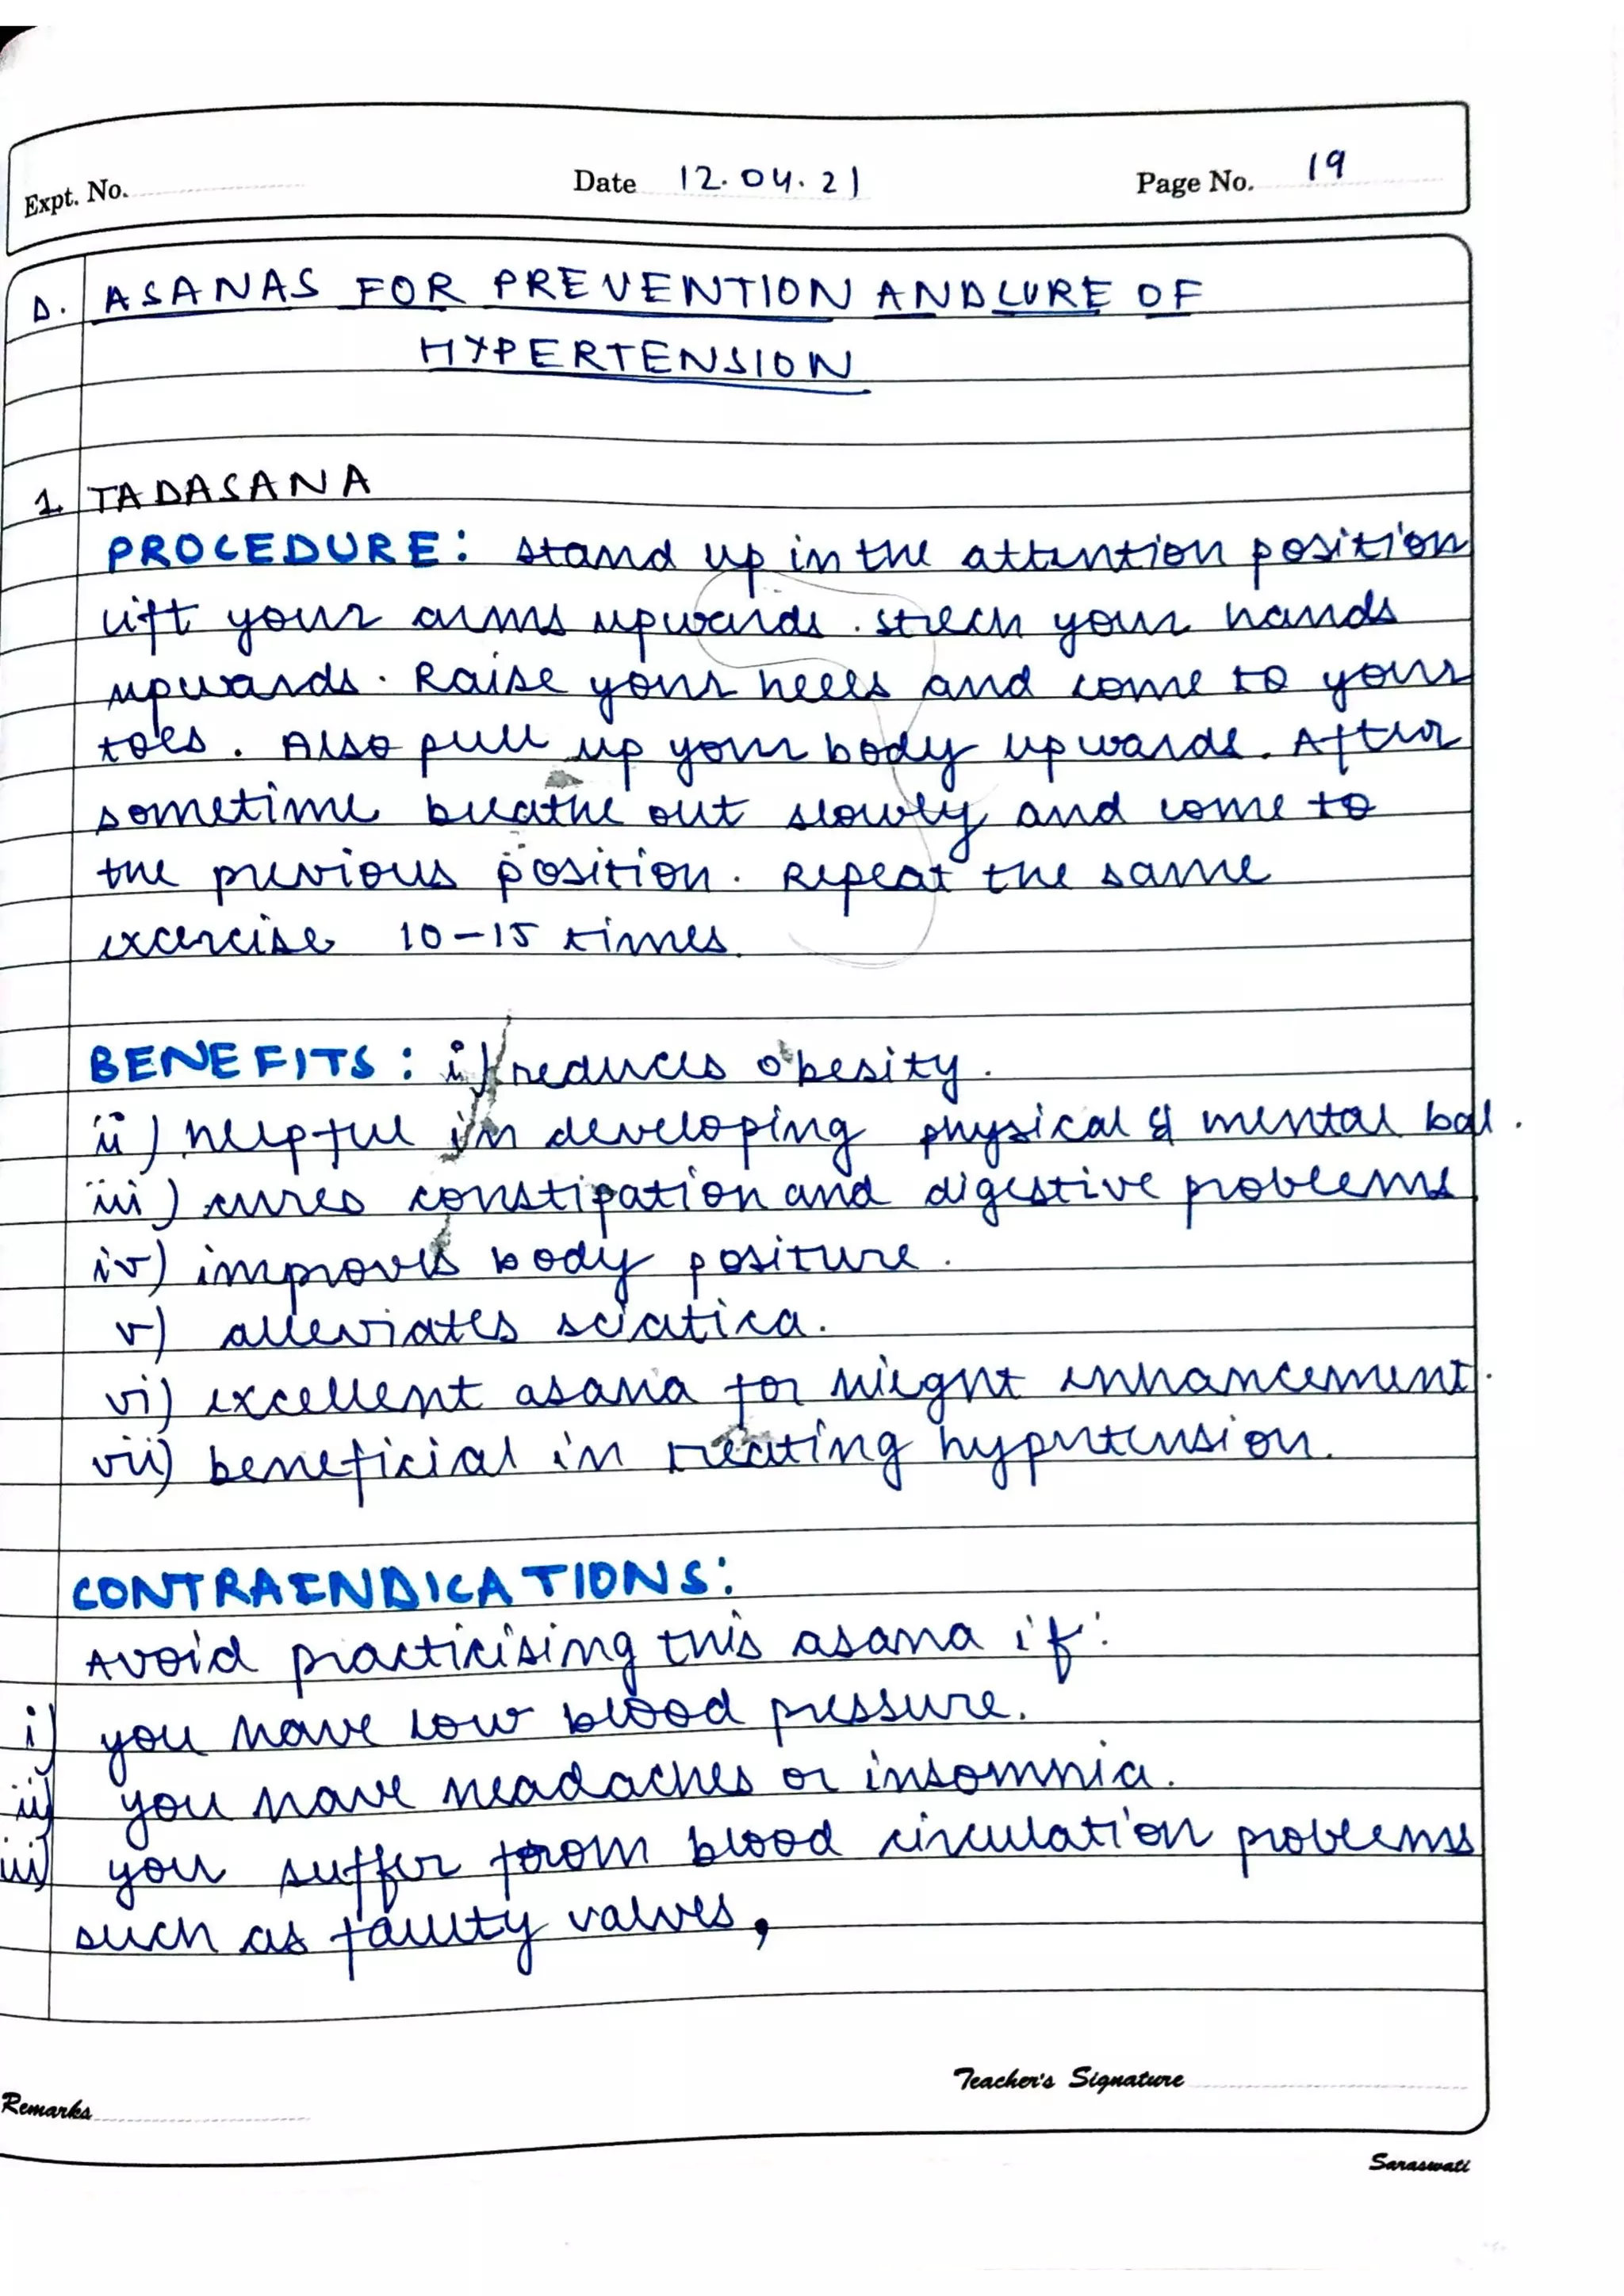 Expt. No.
Date 12.04.21
Page No. 19
D. ASANAS FOR PREVENTION AND CURE OF
HYPERTENSION
1. TADASANA
PROCEDURE: stand up in the attention position
lift your arms upwards. strech your hands
upwards. Raise your heels and come to your
toes. Also pull up your body upwards. After
sometime breathe out slowly and come to
the previous position. Repeat the same
excercise 10-15 times.
BENEFITS: i) reduces obesity.
ii) helpful in developing physical & mental bal.
iii) cures constipation and digestive problems
iv) improves body positure.
v) alleviates sciatica.
vi) excellent asana for hieght enhancement.
vii) beneficial in treating hypertension.
CONTRAINDICATIONS:
Avoid practicising this asana if:
i) you have low blood pressure.
ii) you have headaches or insomnia.
iii) you suffer from blood circulation problems
such as faulty valves,
Teacher's Signature
Remarks
Saraswati